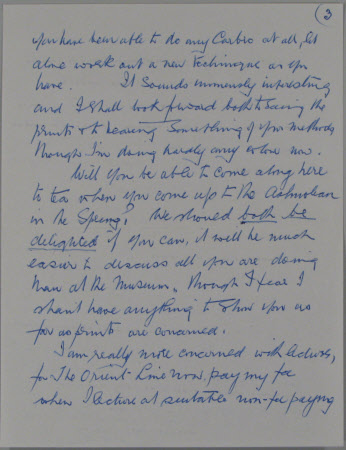 3
you have been able to do any Carbro at all, let
alone work out a new technique as you
have. It sounds immensely interesting
and I shall look forward both to seeing the
prints & to hearing something of your methods
though I'm doing hardly any colour now.
Will you be able to come along here
to tea when you come up to the Ashmolean
in the Spring? We should both be
delighted if you can, it will be much
easier to discuss all you are doing
than at the Museum, though I fear I
shan't have anything to show you as
far as prints are concerned.
I am really more concerned with lectures,
for The Orient Line now pay my fee
when I lecture at suitable non-fee paying